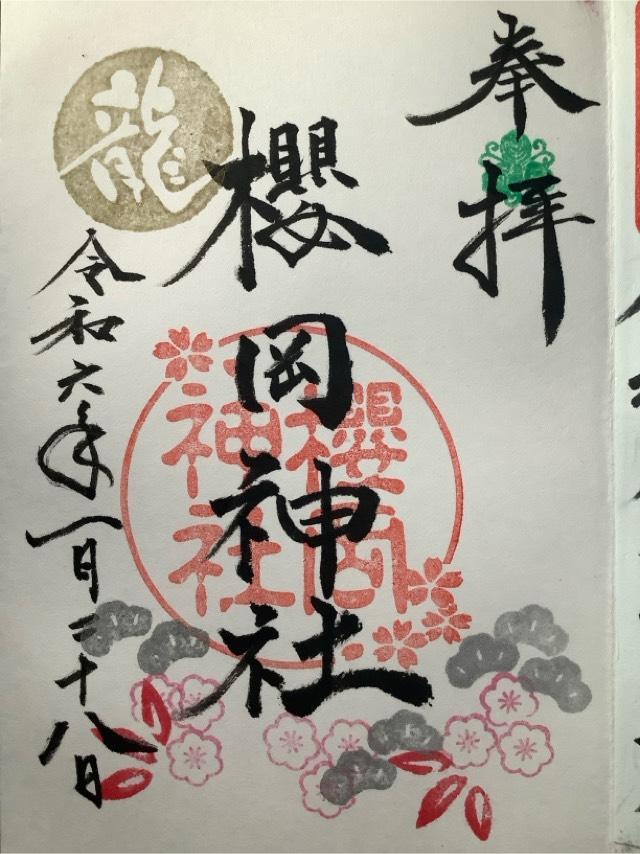 奉拝
櫻岡神社
櫻岡
神社
龍
令和六年一月二十八日